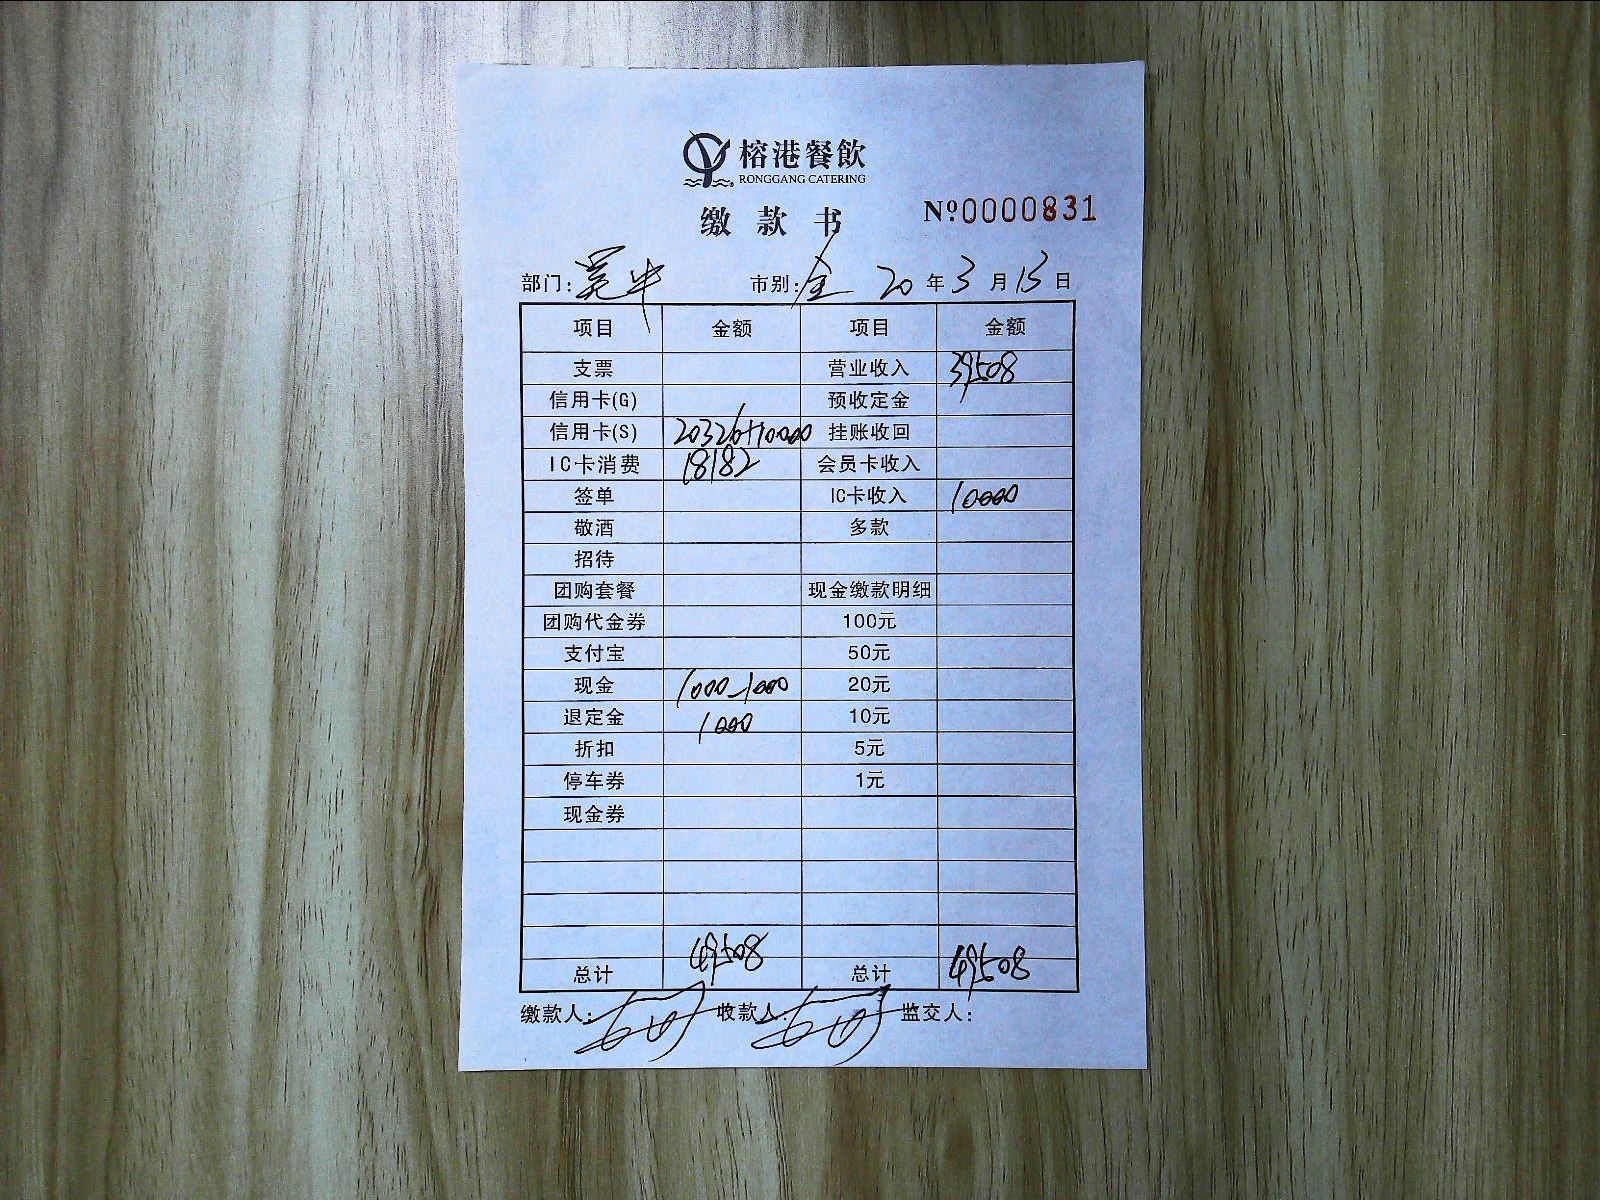 榕港餐飲
RONGGANG CATERING
缴款书
Nº 0000831
部门: 市别: 全 20年3月15日
项目 金额 项目 金额
支票 营业收入 39508
信用卡(G) 预收定金
信用卡(S) 20326+10000 挂账收回
IC卡消费 18182 会员卡收入
签单 IC卡收入 10000
敬酒 多款
招待
团购套餐 现金缴款明细
团购代金券 100元
支付宝 50元
现金 1000-1000 20元
退定金 1000 10元
折扣 5元
停车券 1元
现金券
总计 49508 总计 49508
缴款人: 收款人: 监交人: